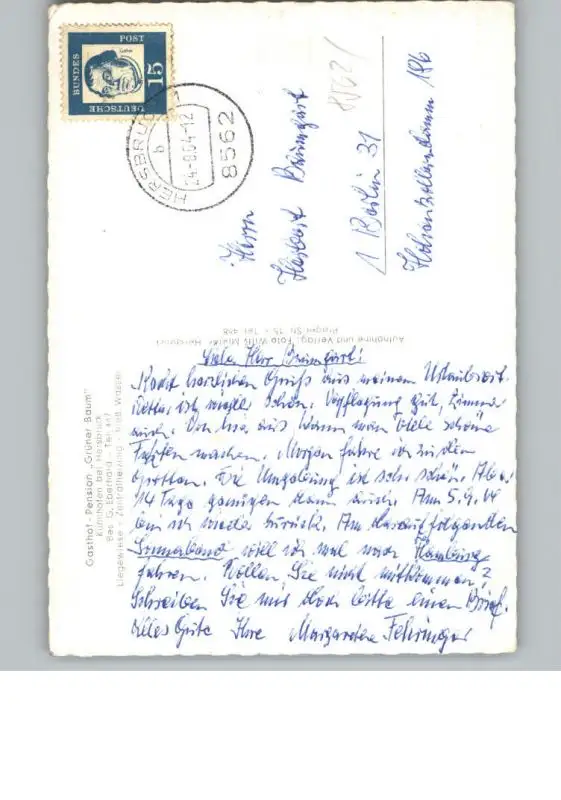 DEUTSCHE
BUNDES
POST
15
HERSBRUCK
b
24-8.64-12
8562
Herrn
Herbert Baumgart
1 Berlin 31
Hohenzollerndamm 186
8562
Aufnahme und Verlag: Foto Wilh.
Gasthof - Pension „Grüner Baum"
Kühnhofen bei Hersbruck
Bes. G. Eberhard - Tel.
Liegewiese - Zentralheizung - fließ. Wasser
Lieber Herr Baumgart!
Recht herzlichen Gruß aus meinem Urlaubsort.
Wetter ist wieder schön. Verpflegung gut, Zimmer
auch. Von hier aus kann man viele schöne
Fahrten machen. Morgen fahre ich zu den
Grotten. Die Umgebung ist sehr schön. Aber
14 Tage genügen dann auch. Am 5.9.64
bin ich wieder zurück. Am darauffolgenden
Sonnabend will ich mal nach Hamburg
fahren. Wollen Sie nicht mitkommen?
Schreiben Sie mir doch bitte einen Brief.
Alles Gute Ihre Margarete Fehringer